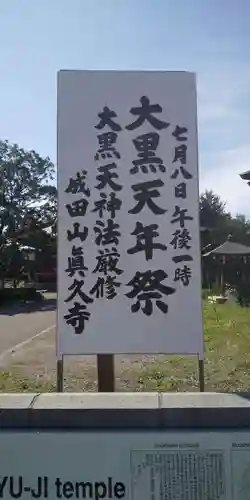 七月八日 午後一時
大黒天年祭
大黒天神法厳修
成田山真久寺
YU-JI temple